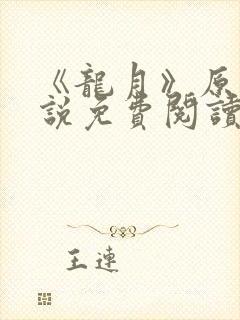 《龍月》原
說免費閱讀
王連